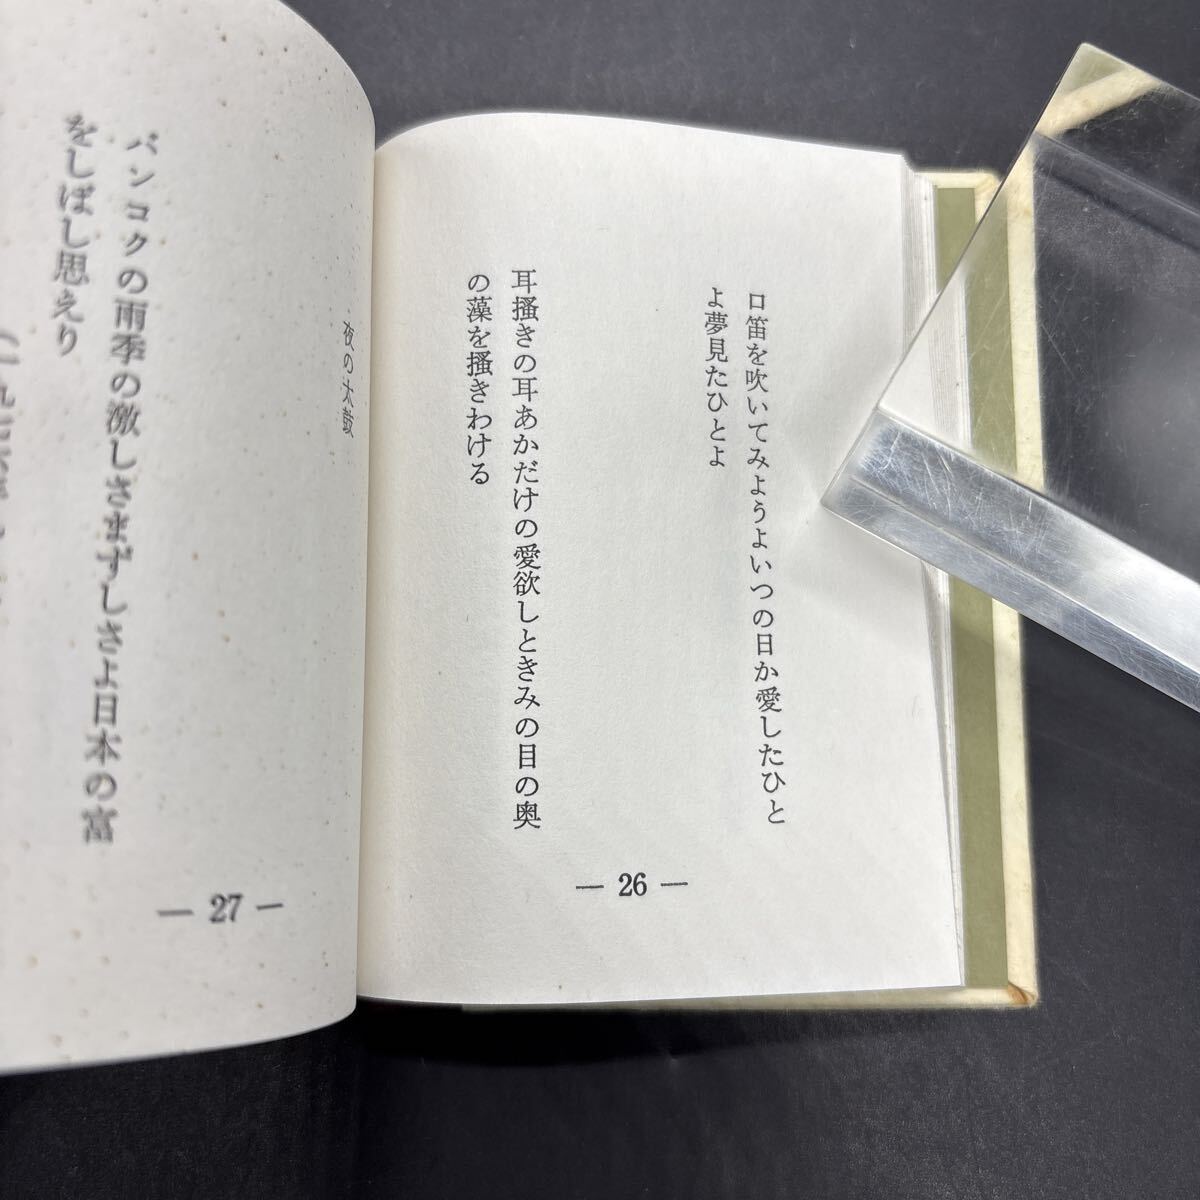 口笛を吹いてみようよいつの日か愛したひと
よ夢見たひとよ
耳搔きの耳あかだけの愛欲しときみの目の奥
の藻を搔きわける
— 26 —
夜の太鼓
バンコクの雨季の激しさまずしさよ日本の富
をしばし思えり
— 27 —